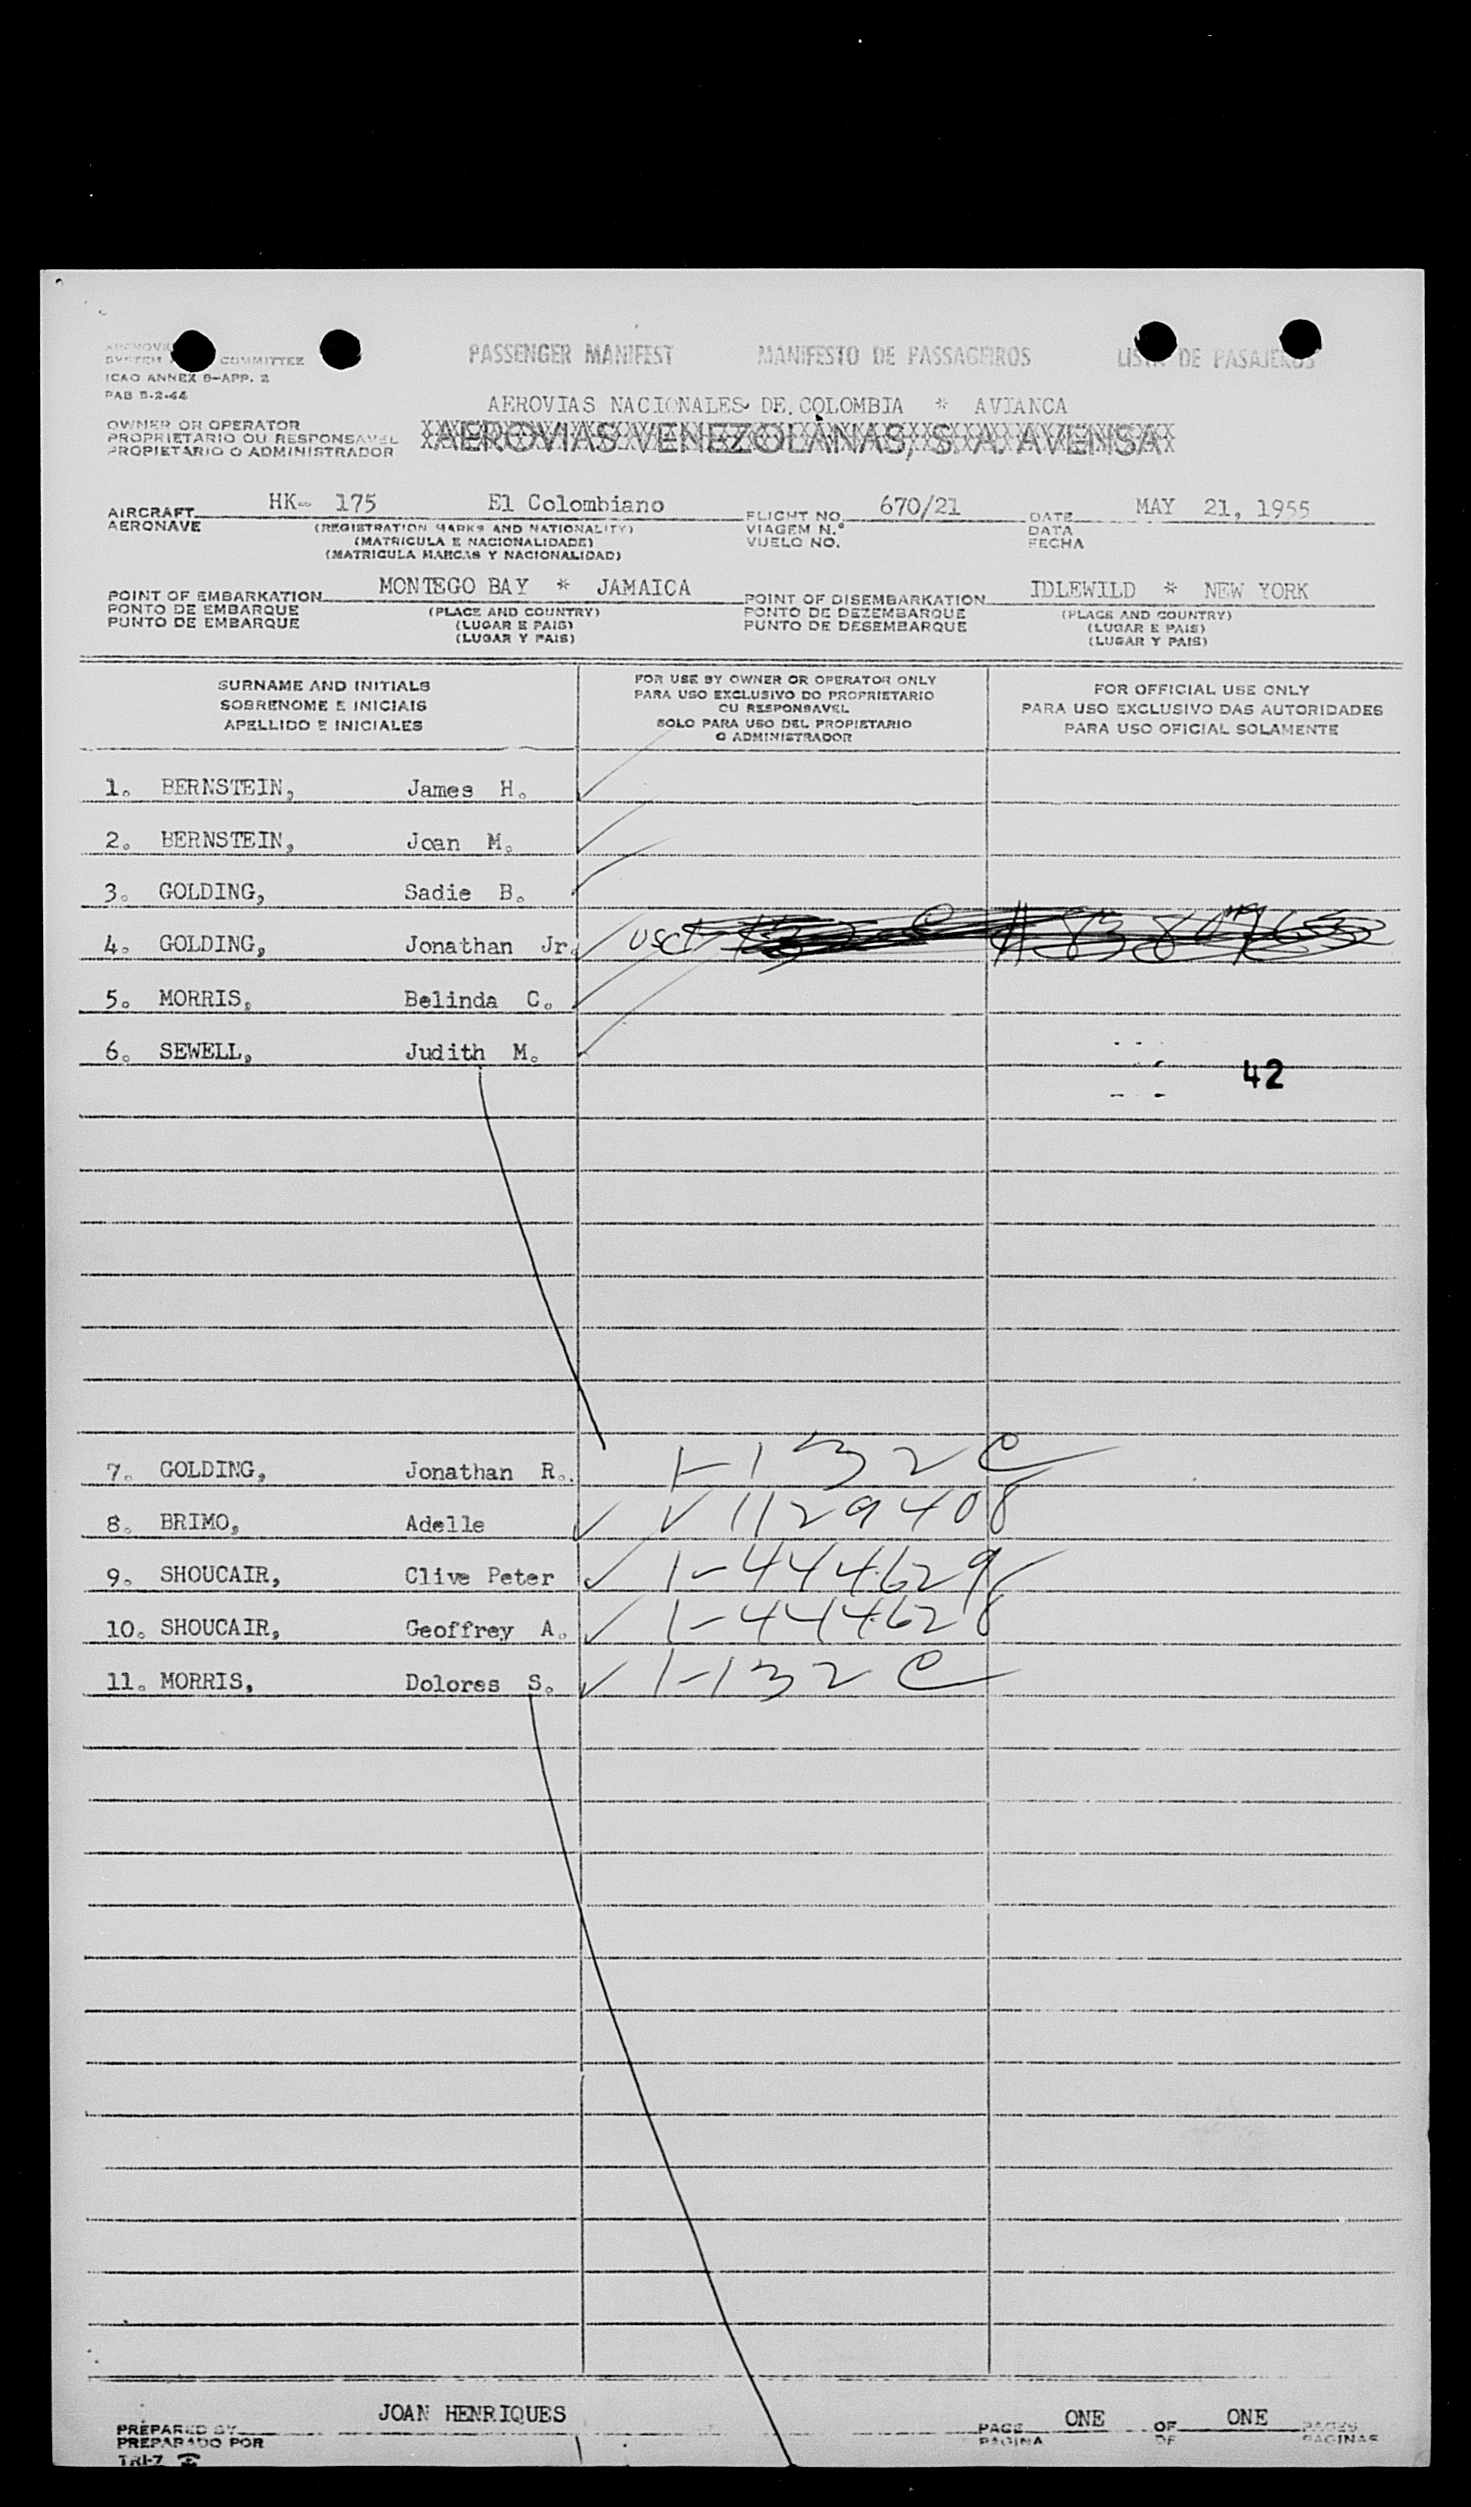 PASSENGER MANIFEST MANIFESTO DE PASSAGEIROS LISTA DE PASAJEROS
COMMITTEE
ICAO ANNEX 9-APP. 2
AEROVIAS NACIONALES DE COLOMBIA * AVIANCA
OWNER OR OPERATOR
PROPRIETARIO OU RESPONSAVEL
PROPIETARIO O ADMINISTRADOR
AEROVIAS VENEZOLANAS, S. A. AVENSA
AIRCRAFT HK- 175 El Colombiano FLIGHT NO. 670/21 DATE MAY 21, 1955
AERONAVE (REGISTRATION MARKS AND NATIONALITY) VIAGEM N.° DATA
(MATRICULA E NACIONALIDADE) VUELO NO. FECHA
(MATRICULA MARCAS Y NACIONALIDAD)
POINT OF EMBARKATION MONTEGO BAY * JAMAICA POINT OF DISEMBARKATION IDLEWILD * NEW YORK
PONTO DE EMBARQUE (PLACE AND COUNTRY) PONTO DE DEZEMBARQUE (PLACE AND COUNTRY)
PUNTO DE EMBARQUE (LUGAR E PAIS) PUNTO DE DESEMBARQUE (LUGAR E PAIS)
(LUGAR Y PAIS) (LUGAR Y PAIS)
SURNAME AND INITIALS
SOBRENOME E INICIAIS
APELLIDO E INICIALES
FOR USE BY OWNER OR OPERATOR ONLY
PARA USO EXCLUSIVO DO PROPRIETARIO
OU RESPONSAVEL
SOLO PARA USO DEL PROPIETARIO
O ADMINISTRADOR
FOR OFFICIAL USE ONLY
PARA USO EXCLUSIVO DAS AUTORIDADES
PARA USO OFICIAL SOLAMENTE
1. BERNSTEIN, James H.
2. BERNSTEIN, Joan M.
3. GOLDING, Sadie B.
4. GOLDING, Jonathan Jr.
5. MORRIS, Belinda C.
6. SEWELL, Judith M.
42
7. GOLDING, Jonathan R. 1-132 C
8. BRIMO, Adelle V 1129408
9. SHOUCAIR, Clive Peter 1-444629
10. SHOUCAIR, Geoffrey A. 1-444628
11. MORRIS, Dolores S. 1-132 C
PREPARED BY JOAN HENRIQUES PAGE ONE OF ONE PAGES
PREPARADO POR PAGINA DE PAGINAS
TRI-7